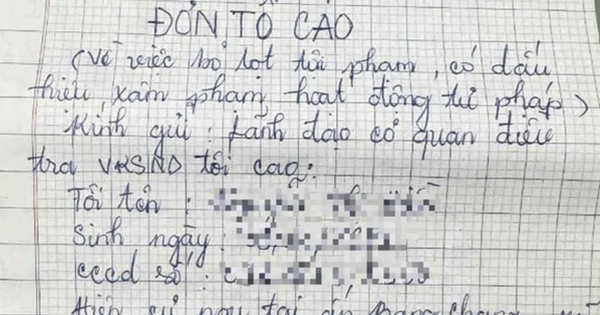 ĐƠN TỐ CÁO
(Về việc bỏ lọt tội phạm, có dấu
hiệu xâm phạm hoạt động tư pháp)
Kính gửi: Lãnh đạo cơ quan điều
tra VKSND tối cao:
Tôi tên:
Sinh ngày:
cccd số:
Hiện cư